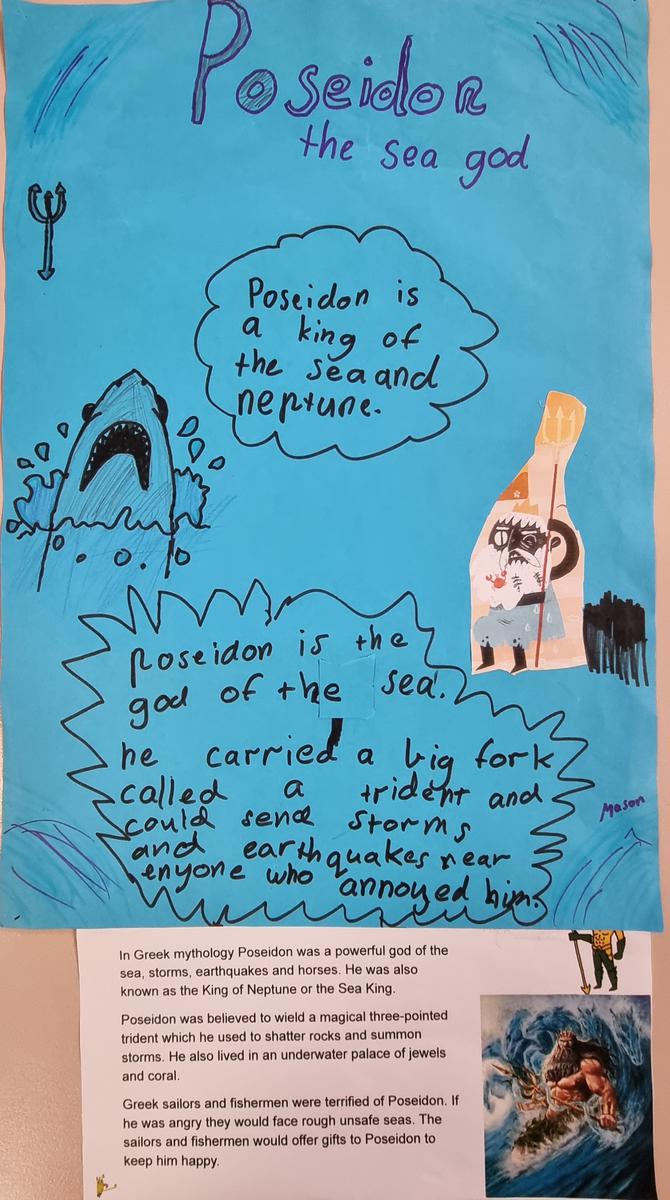 Poseidon
the sea god
Poseidon is
a king of
the sea and
neptune.
poseidon is the
god of the sea.
he carried a big fork
called a trident and
could send storms
and earthquakes near
enyone who annoyed him.
Mason
In Greek mythology Poseidon was a powerful god of the
sea, storms, earthquakes and horses. He was also
known as the King of Neptune or the Sea King.
Poseidon was believed to wield a magical three-pointed
trident which he used to shatter rocks and summon
storms. He also lived in an underwater palace of jewels
and coral.
Greek sailors and fishermen were terrified of Poseidon. If
he was angry they would face rough unsafe seas. The
sailors and fishermen would offer gifts to Poseidon to
keep him happy.